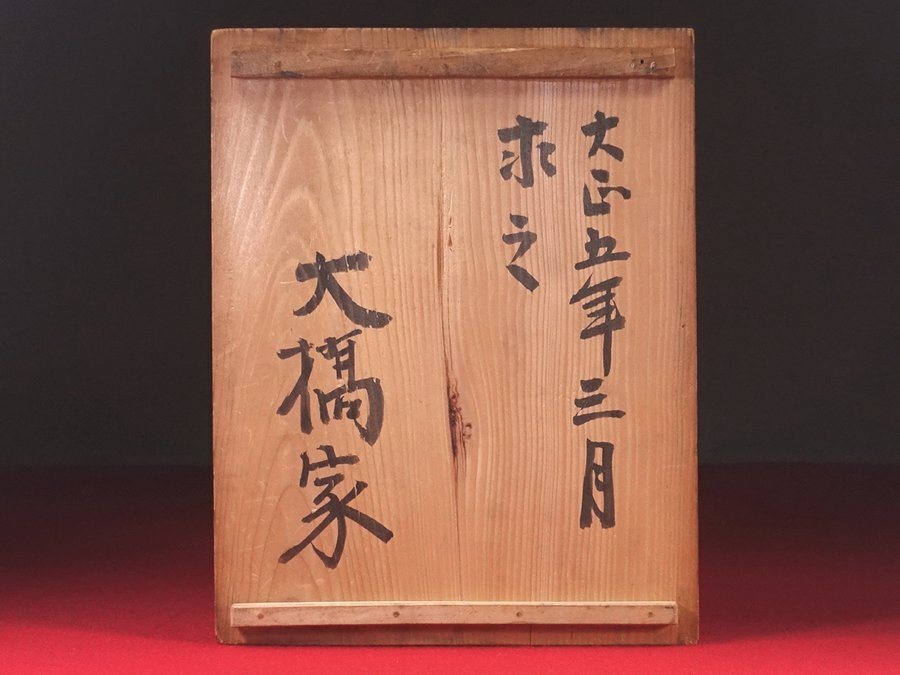 大正五年三月
求之
大橋家